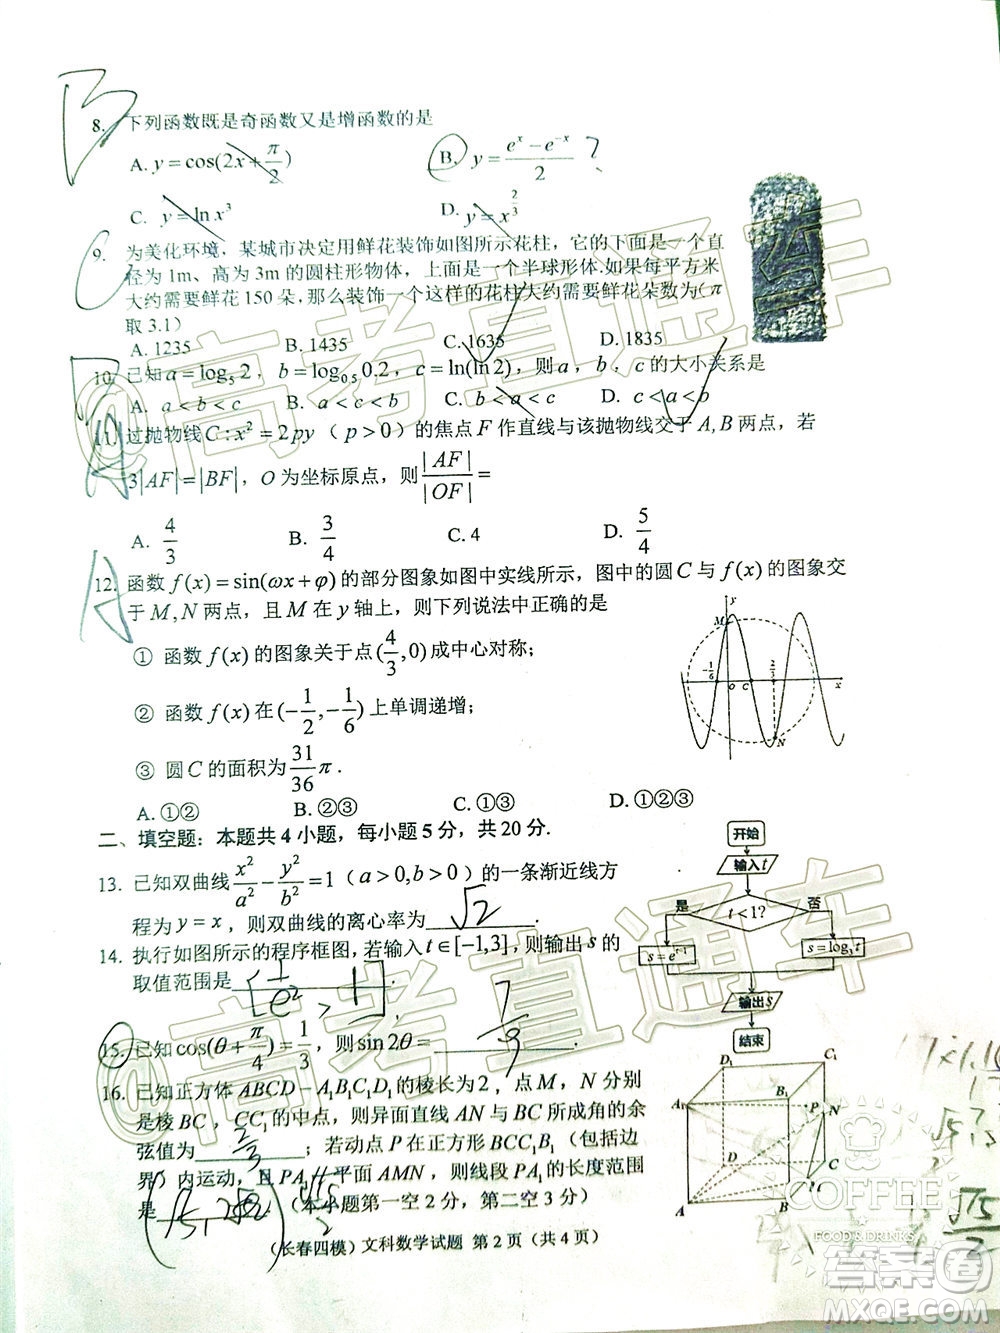 B
8. 下列函数既是奇函数又是增函数的是
A. y = cos(2x + π/2)
B. y = (e^x − e^−x)/2 ?
C. y = ln x³
D. y = x^(2/3)
C
9. 为美化环境，某城市决定用鲜花装饰如图所示花柱，它的下面是一个直
径为 1m、高为 3m 的圆柱形物体，上面是一个半球形体.如果每平方米
大约需要鲜花 150 朵，那么装饰一个这样的花柱大约需要鲜花朵数为(π
取 3.1)
A. 1235 B. 1435 C. 1635 D. 1835
B
10. 已知 a = log₅2，b = log₀.₅0.2，c = ln(ln 2)，则 a，b，c 的大小关系是
A. a < b < c B. c < a < b C. b < a < c D. c < a < b
A
11. 过抛物线 C : x² = 2py（p > 0）的焦点 F 作直线与该抛物线交于 A, B 两点，若
3|AF| = |BF|，O 为坐标原点，则 |AF|/|OF| =
A. 4/3 B. 3/4 C. 4 D. 5/4
A
12. 函数 f(x) = sin(ωx + φ) 的部分图象如图中实线所示，图中的圆 C 与 f(x) 的图象交
于 M, N 两点，且 M 在 y 轴上，则下列说法中正确的是
① 函数 f(x) 的图象关于点 (4/3, 0) 成中心对称；
② 函数 f(x) 在 (−1/2, −1/6) 上单调递增；
③ 圆 C 的面积为 31/36 π．
A. ①② B. ②③ C. ①③ D. ①②③
y
M
−1/6 O C 2/3 x
N
二、填空题：本题共 4 小题，每小题 5 分，共 20 分.
13. 已知双曲线 x²/a² − y²/b² = 1（a > 0, b > 0）的一条渐近线方
程为 y = x，则双曲线的离心率为 √2 ．
14. 执行如图所示的程序框图，若输入 t ∈ [−1,3]，则输出 s 的
取值范围是 [1/e², 1] ．
开始
输入 t
是 t < 1? 否
s = e^(t−1) s = log₃t
输出 s
结束
15. 已知 cos(θ + π/4) = 1/3，则 sin 2θ = 7/9 ．
16. 已知正方体 ABCD − A₁B₁C₁D₁ 的棱长为 2，点 M，N 分别
是棱 BC，CC₁ 的中点，则异面直线 AN 与 BC 所成角的余
弦值为 2/3 ；若动点 P 在正方形 BCC₁B₁（包括边
界）内运动，且 PA₁ // 平面 AMN，则线段 PA₁ 的长度范围
是 （本小题第一空 2 分，第二空 3 分）
D₁ C₁
A₁ B₁ P N
D C
A B
（长春四模）文科数学试题 第 2 页（共 4 页）
@高考直通车
@高考直通车
COFFEE
FOOD & DRINKS
答案圈
MXQE.COM